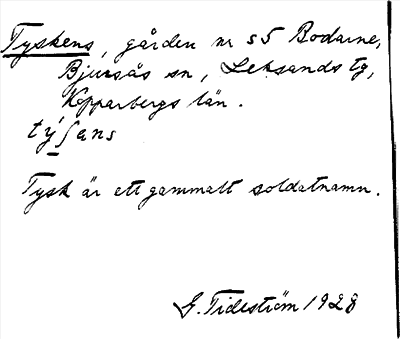 Tyskens, gården nr 55 Bodarne,
Bjursås sn, Leksands tg,
Kopparbergs län.
týʃans
Tysk är ett gammalt soldatnamn.
G. Tideström 1928